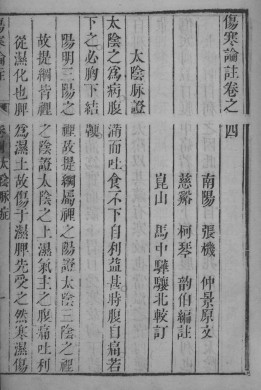 傷寒論註卷之四
南陽 張機 仲景原文
慈谿 柯琴 韻伯編註
崑山 馬中驊驤北較訂
太陰脉證
太陰之為病腹滿而吐食不下自利益甚時腹自痛若
下之必胸下結鞕
陽明三陽之裡故提綱屬裡之陽證太陰三陰之裡
故提綱皆裡之陰證太陰之上濕氣主之腹痛吐利
從濕化也脾為濕土故傷于濕脾先受之然寒濕傷